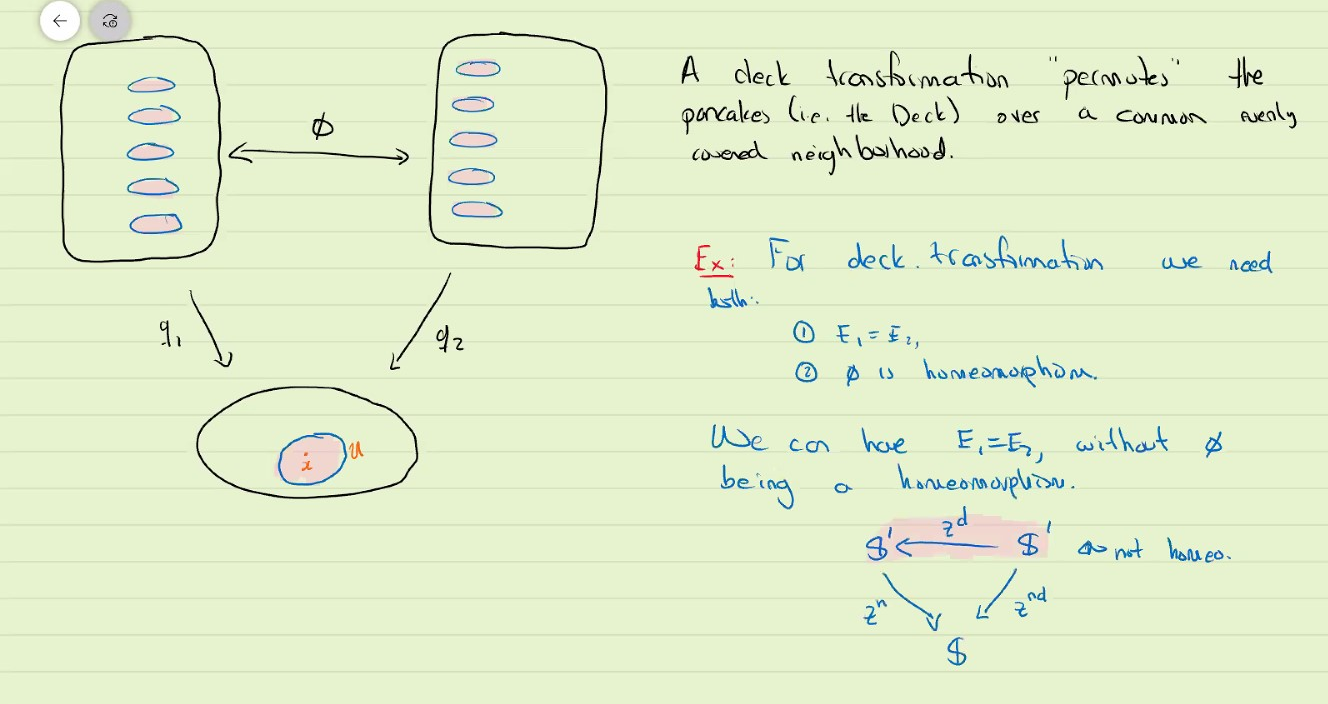 A deck transformation "permutes" the
pancakes (i.e. the Deck) over a common evenly
covered neighborhood.
φ
q₁
q₂
i
u
Ex: For deck. transformation we need
both:
① E₁ = E₂,
② φ is homeomorphism.
We can have E₁=E₂, without φ
being a homeomorphism.
z^d
$' $' not homeo.
z^n z^nd
$